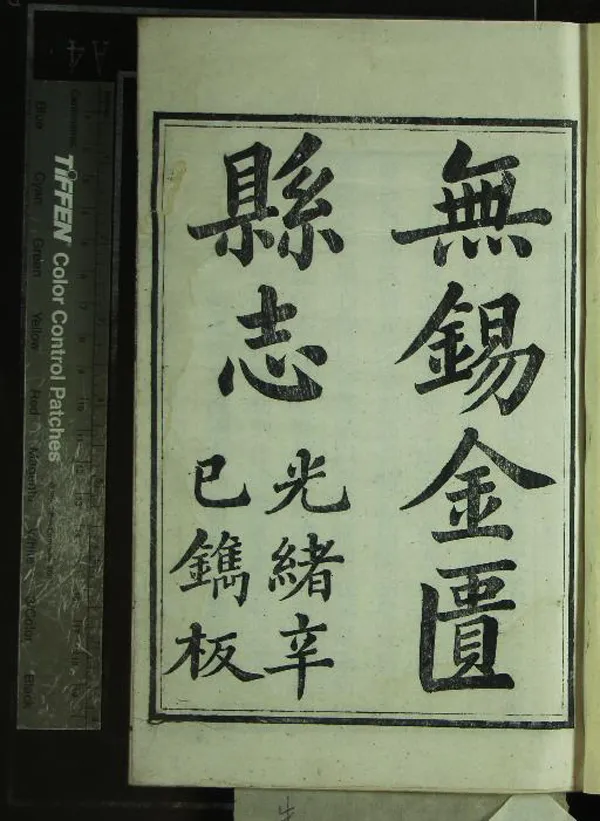 無錫金匱
縣志
光緒辛
巳鐫板
TIFFEN Color Control Patches
Blue
Cyan
Green
Yellow
Red
Magenta
White
3/Color
Black